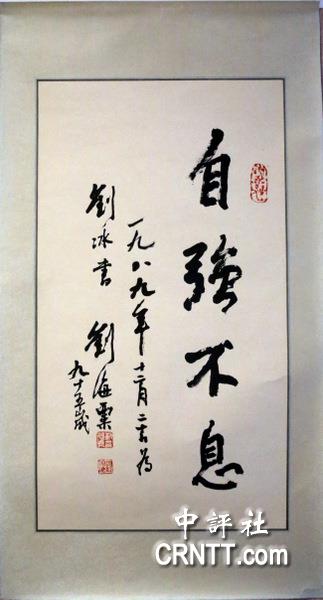 自強不息
一九八九年十二月二 為
劉冰書 劉海粟
九十五歲
中評社
CRNTT.com